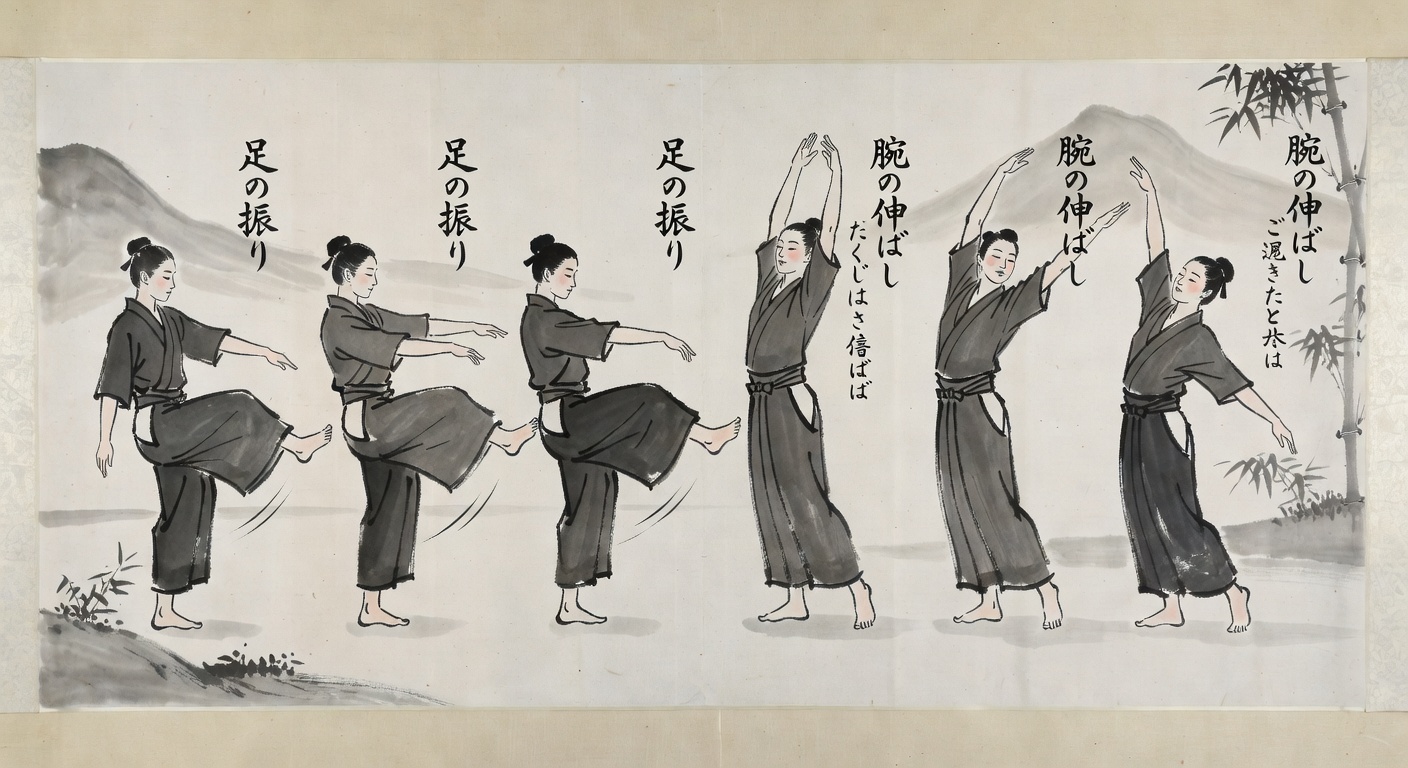 腕の伸ばし
きたと
腕の伸ばし
腕の伸ばし
たくじはさばば
足の振り
足の振り
足の振り